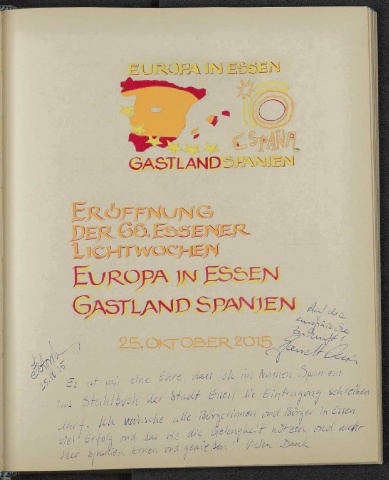 EUROPA IN ESSEN
ESPAÑA
GASTLAND SPANIEN
ERÖFFNUNG
DER 66. ESSENER
LICHTWOCHEN
EUROPA IN ESSEN
GASTLAND SPANIEN
25. OKTOBER 2015
Auf die
europäische
Zukunft!
25.10.15
Es ist mir eine Ehre, dass ich im Namen Spaniens
ins Stahlbuch der Stadt Essen die Eintragung schreiben
darf. Ich wünsche alle Bürgerinnen und Bürger in Essen
viel Erfolg und das sie die Gelegenheit nützen und mehr
über Spanien lernen und genießen. Vielen Dank